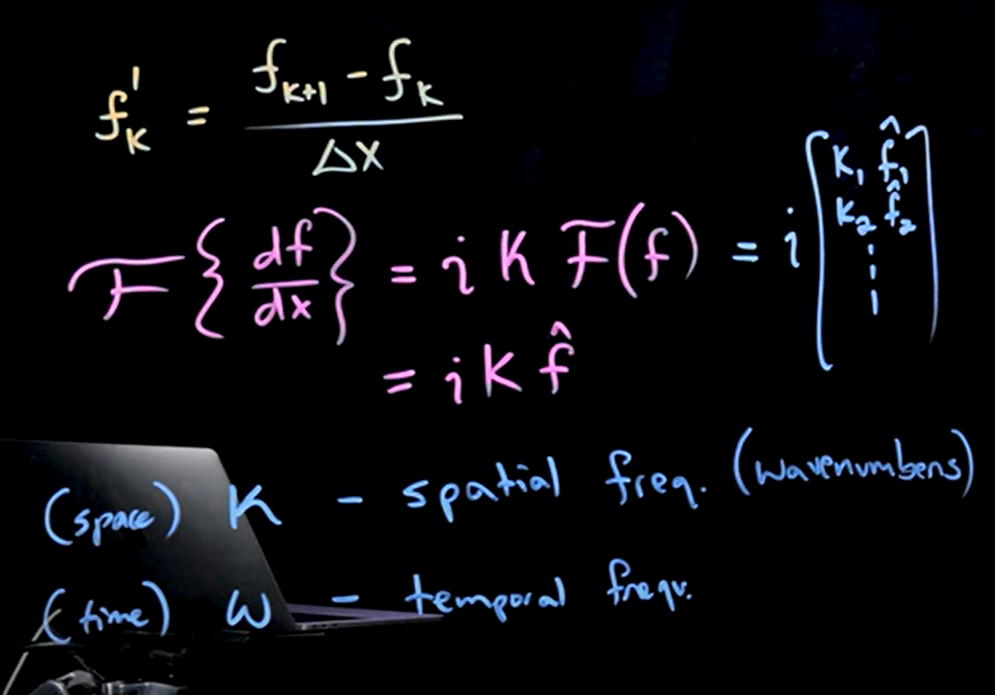 f'ₖ = (fₖ₊₁ - fₖ) / Δx
ℱ{df/dx} = i K ℱ(f) = i [K₁ f̂₁
K₂ f̂₂
⋮ ]
= i K f̂
(space) K - spatial freq. (wavenumbers)
(time) ω - temporal freqv.